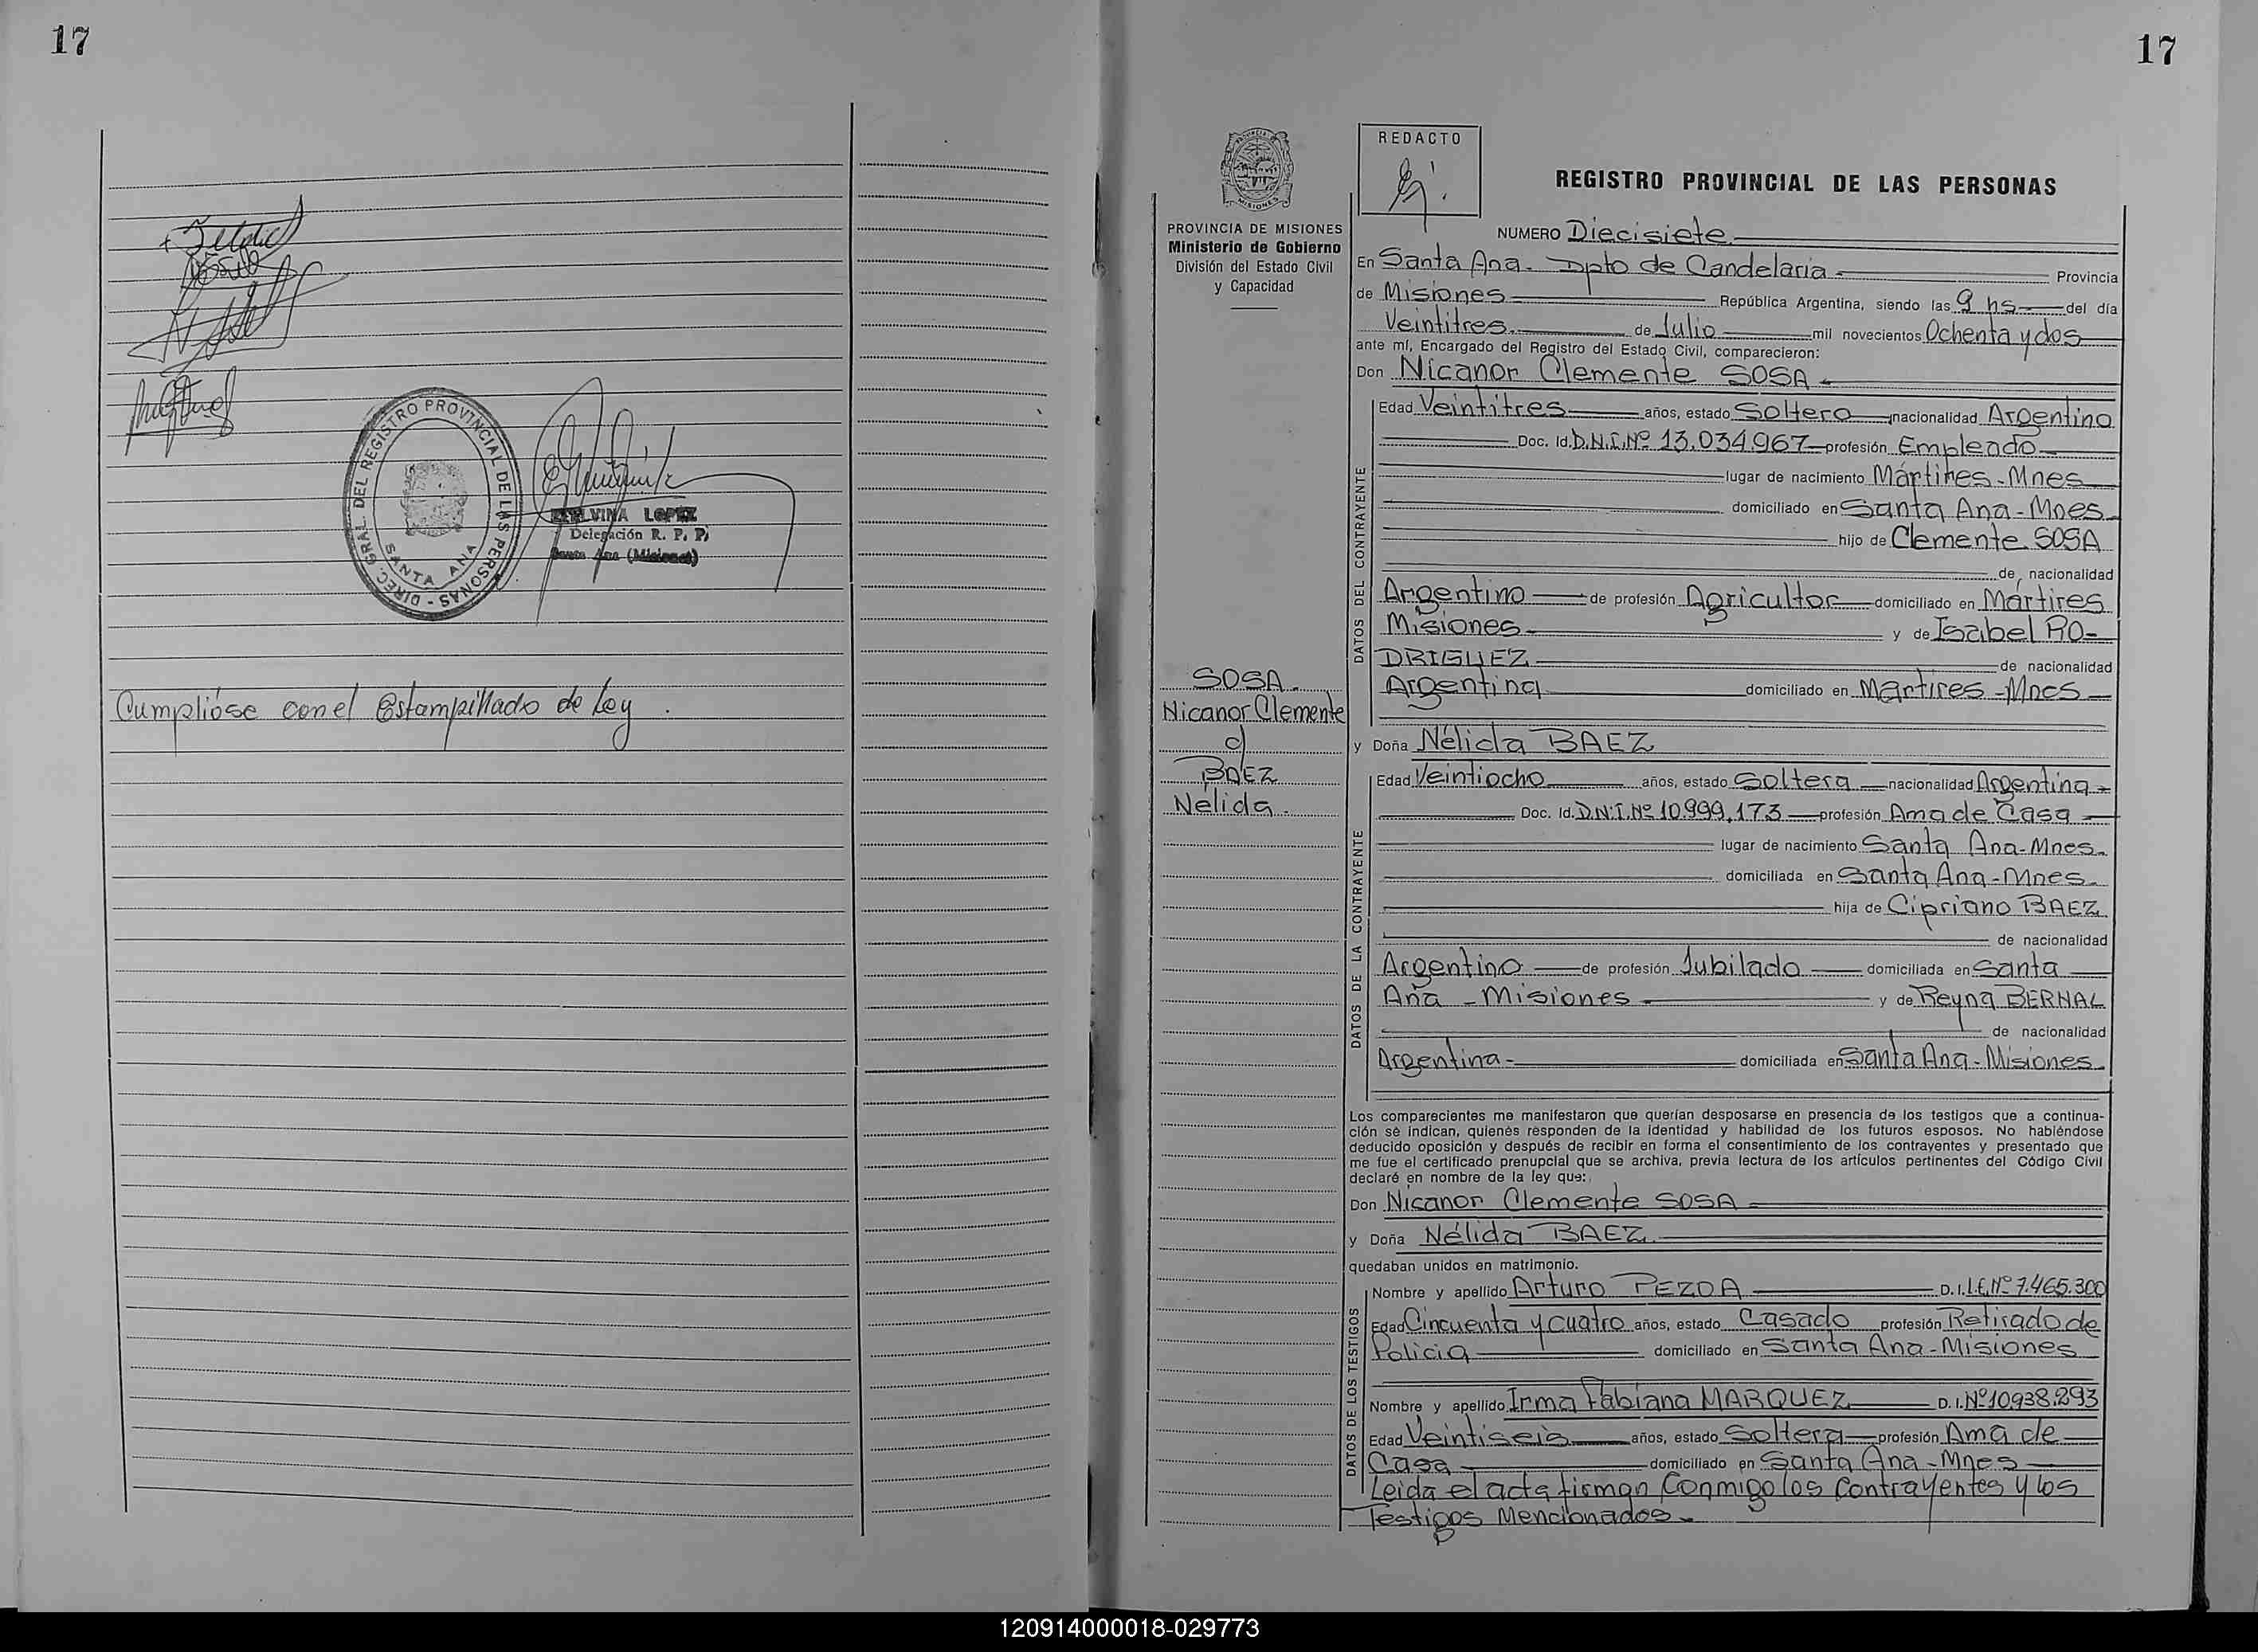 17
Cumplióse con el Estampillado de Ley.
DIREC. GRAL. DEL REGISTRO PROVINCIAL DE LAS PERSONAS -
SANTA ANA
ELVINA LOPEZ
Delegación R. P. P.
Santa Ana (Misiones)
17
PROVINCIA DE MISIONES
Ministerio de Gobierno
División del Estado Civil
y Capacidad
SOSA
Nicanor Clemente
BAEZ
Nélida.
REDACTO
REGISTRO PROVINCIAL DE LAS PERSONAS
NUMERO Diecisiete
En Santa Ana - Dpto de Candelaria - Provincia
de Misiones República Argentina, siendo las 9 hs del día
Veintitres de Julio mil novecientos Ochenta y dos
ante mí, Encargado del Registro del Estado Civil, comparecieron:
Don Nicanor Clemente SOSA
DATOS DEL CONTRAYENTE
Edad Veintitres años, estado Soltero nacionalidad Argentino
Doc. Id. D.N.I.Nº 13.034.967 profesión Empleado
lugar de nacimiento Mártires - Mnes
domiciliado en Santa Ana - Mnes
hijo de Clemente SOSA
de nacionalidad
Argentino de profesión Agricultor domiciliado en Mártires
Misiones y de Isabel RO-
DRIGUEZ de nacionalidad
Argentina domiciliado en Mártires - Mnes
y Doña Nélida BAEZ
DATOS DE LA CONTRAYENTE
Edad Veintiocho años, estado Soltera nacionalidad Argentina
Doc. Id. D.N.I. Nº 10.999.173 profesión Ama de Casa
lugar de nacimiento Santa Ana - Mnes.
domiciliada en Santa Ana - Mnes.
hija de Cipriano BAEZ
de nacionalidad
Argentino de profesión Jubilado domiciliada en Santa
Ana - Misiones y de Reyna BERNAL
de nacionalidad
Argentina - domiciliada en Santa Ana - Misiones
Los comparecientes me manifestaron que querían desposarse en presencia de los testigos que a continua-
ción se indican, quienes responden de la identidad y habilidad de los futuros esposos. No habiéndose
deducido oposición y después de recibir en forma el consentimiento de los contrayentes y presentado que
me fue el certificado prenupcial que se archiva, previa lectura de los artículos pertinentes del Código Civil
declaré en nombre de la ley que:
Don Nicanor Clemente SOSA
y Doña Nélida BAEZ.
quedaban unidos en matrimonio.
DATOS DE LOS TESTIGOS
Nombre y apellido Arturo PEZOA D. I. L.E. Nº 7.465.300
Edad Cincuenta y cuatro años, estado Casado profesión Retirado de
Policía domiciliado en Santa Ana - Misiones
Nombre y apellido Irma Fabiana MARQUEZ D. I. Nº 10938.293
Edad Veintiseis años, estado Soltera profesión Ama de
Casa domiciliado en Santa Ana - Mnes
Leída el acta firman Conmigo los Contrayentes y los
Testigos Mencionados.
120914000018-029773